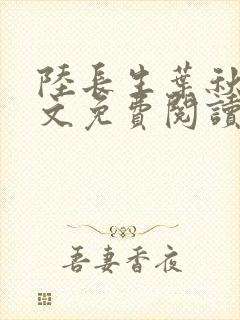 陸長生葉秋
文免費閱讀
吾妻香夜